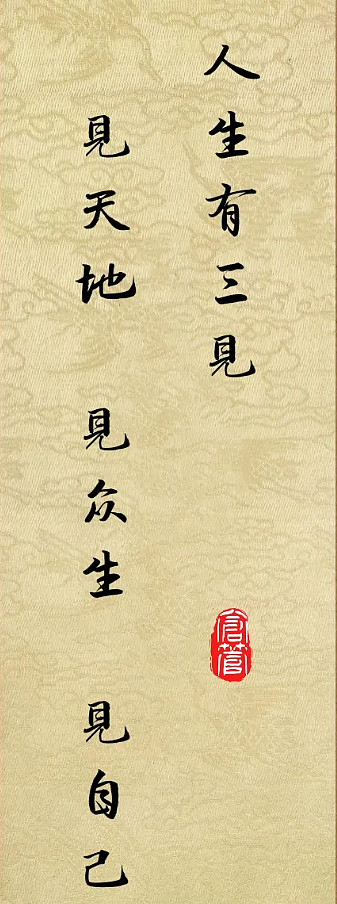 人生有三見
見天地 見众生 見自己
倉管